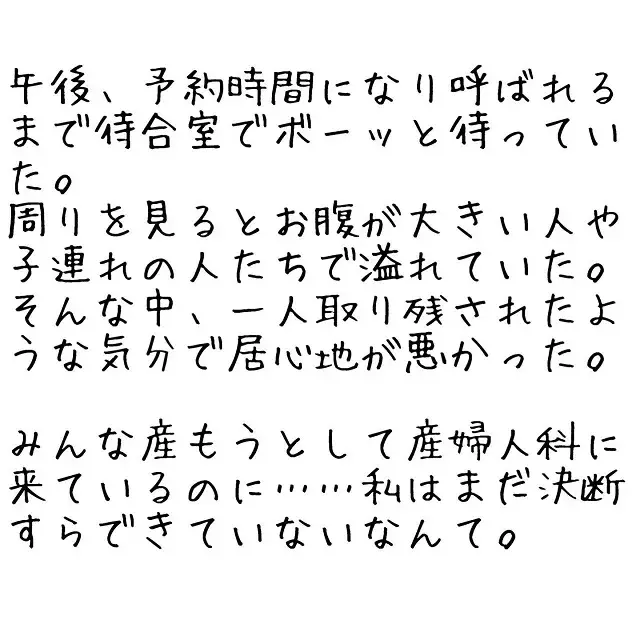 午後、予約時間になり呼ばれる
まで待合室でボーッと待ってい
た。
周りを見るとお腹が大きい人や
子連れの人たちで溢れていた。
そんな中、一人取り残されたよ
うな気分で居心地が悪かった。
みんな産もうとして産婦人科に
来ているのに……私はまだ決断
すらできていないなんて。